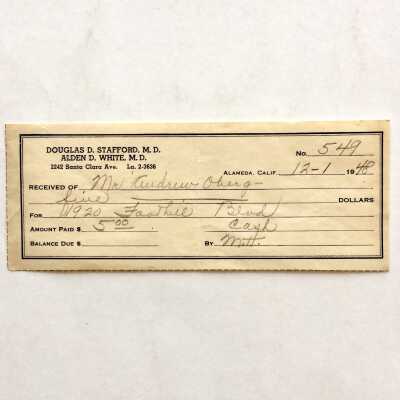 DOUGLAS D. STAFFORD, M. D.
ALDEN D. WHITE, M. D.
2242 Santa Clara Ave. La. 2-3636
No. 549
ALAMEDA, CALIF. 12-1 1948
RECEIVED OF Mr. Andrew Oberg
five DOLLARS
FOR 1920 Blvd
AMOUNT PAID $ 5.00 Cash
BALANCE DUE $ BY